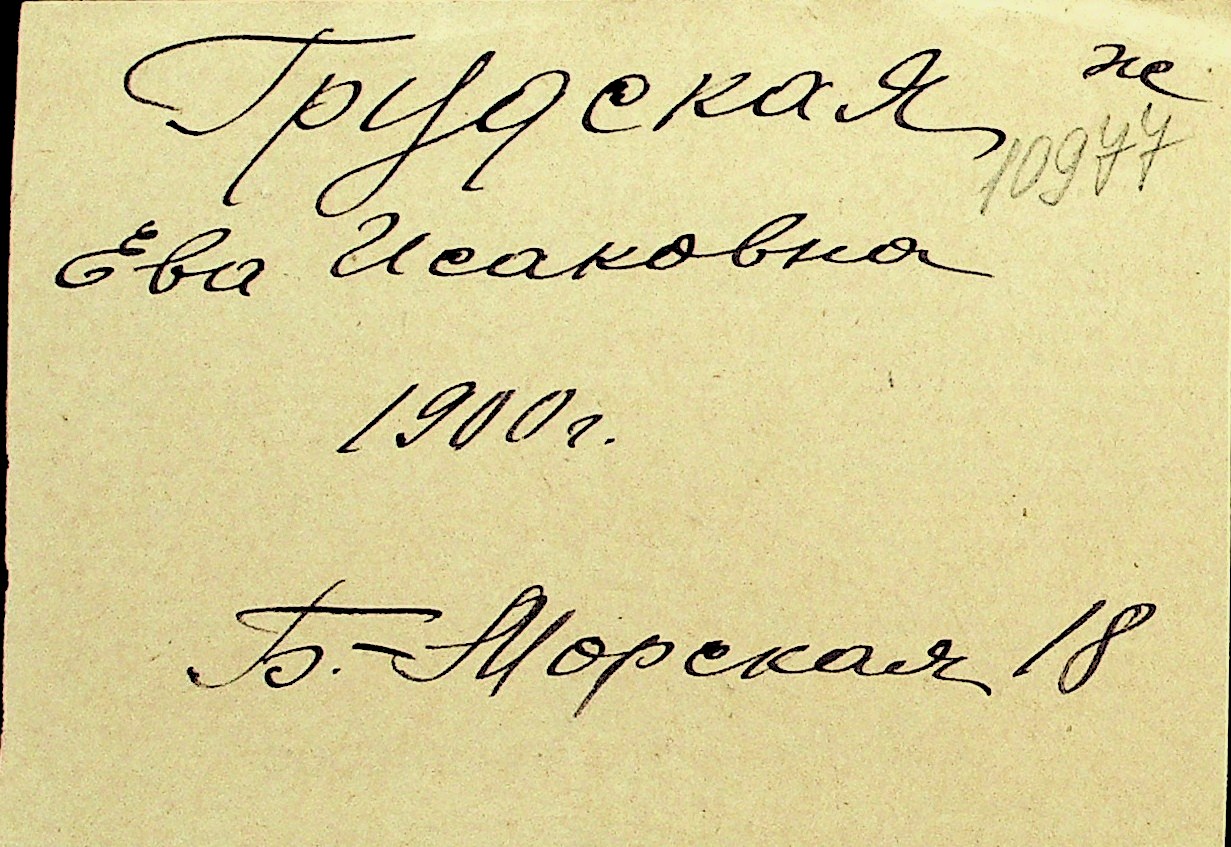 Грудская же
10977
Ева Исаковна
1900г.
Б.-Морская 18